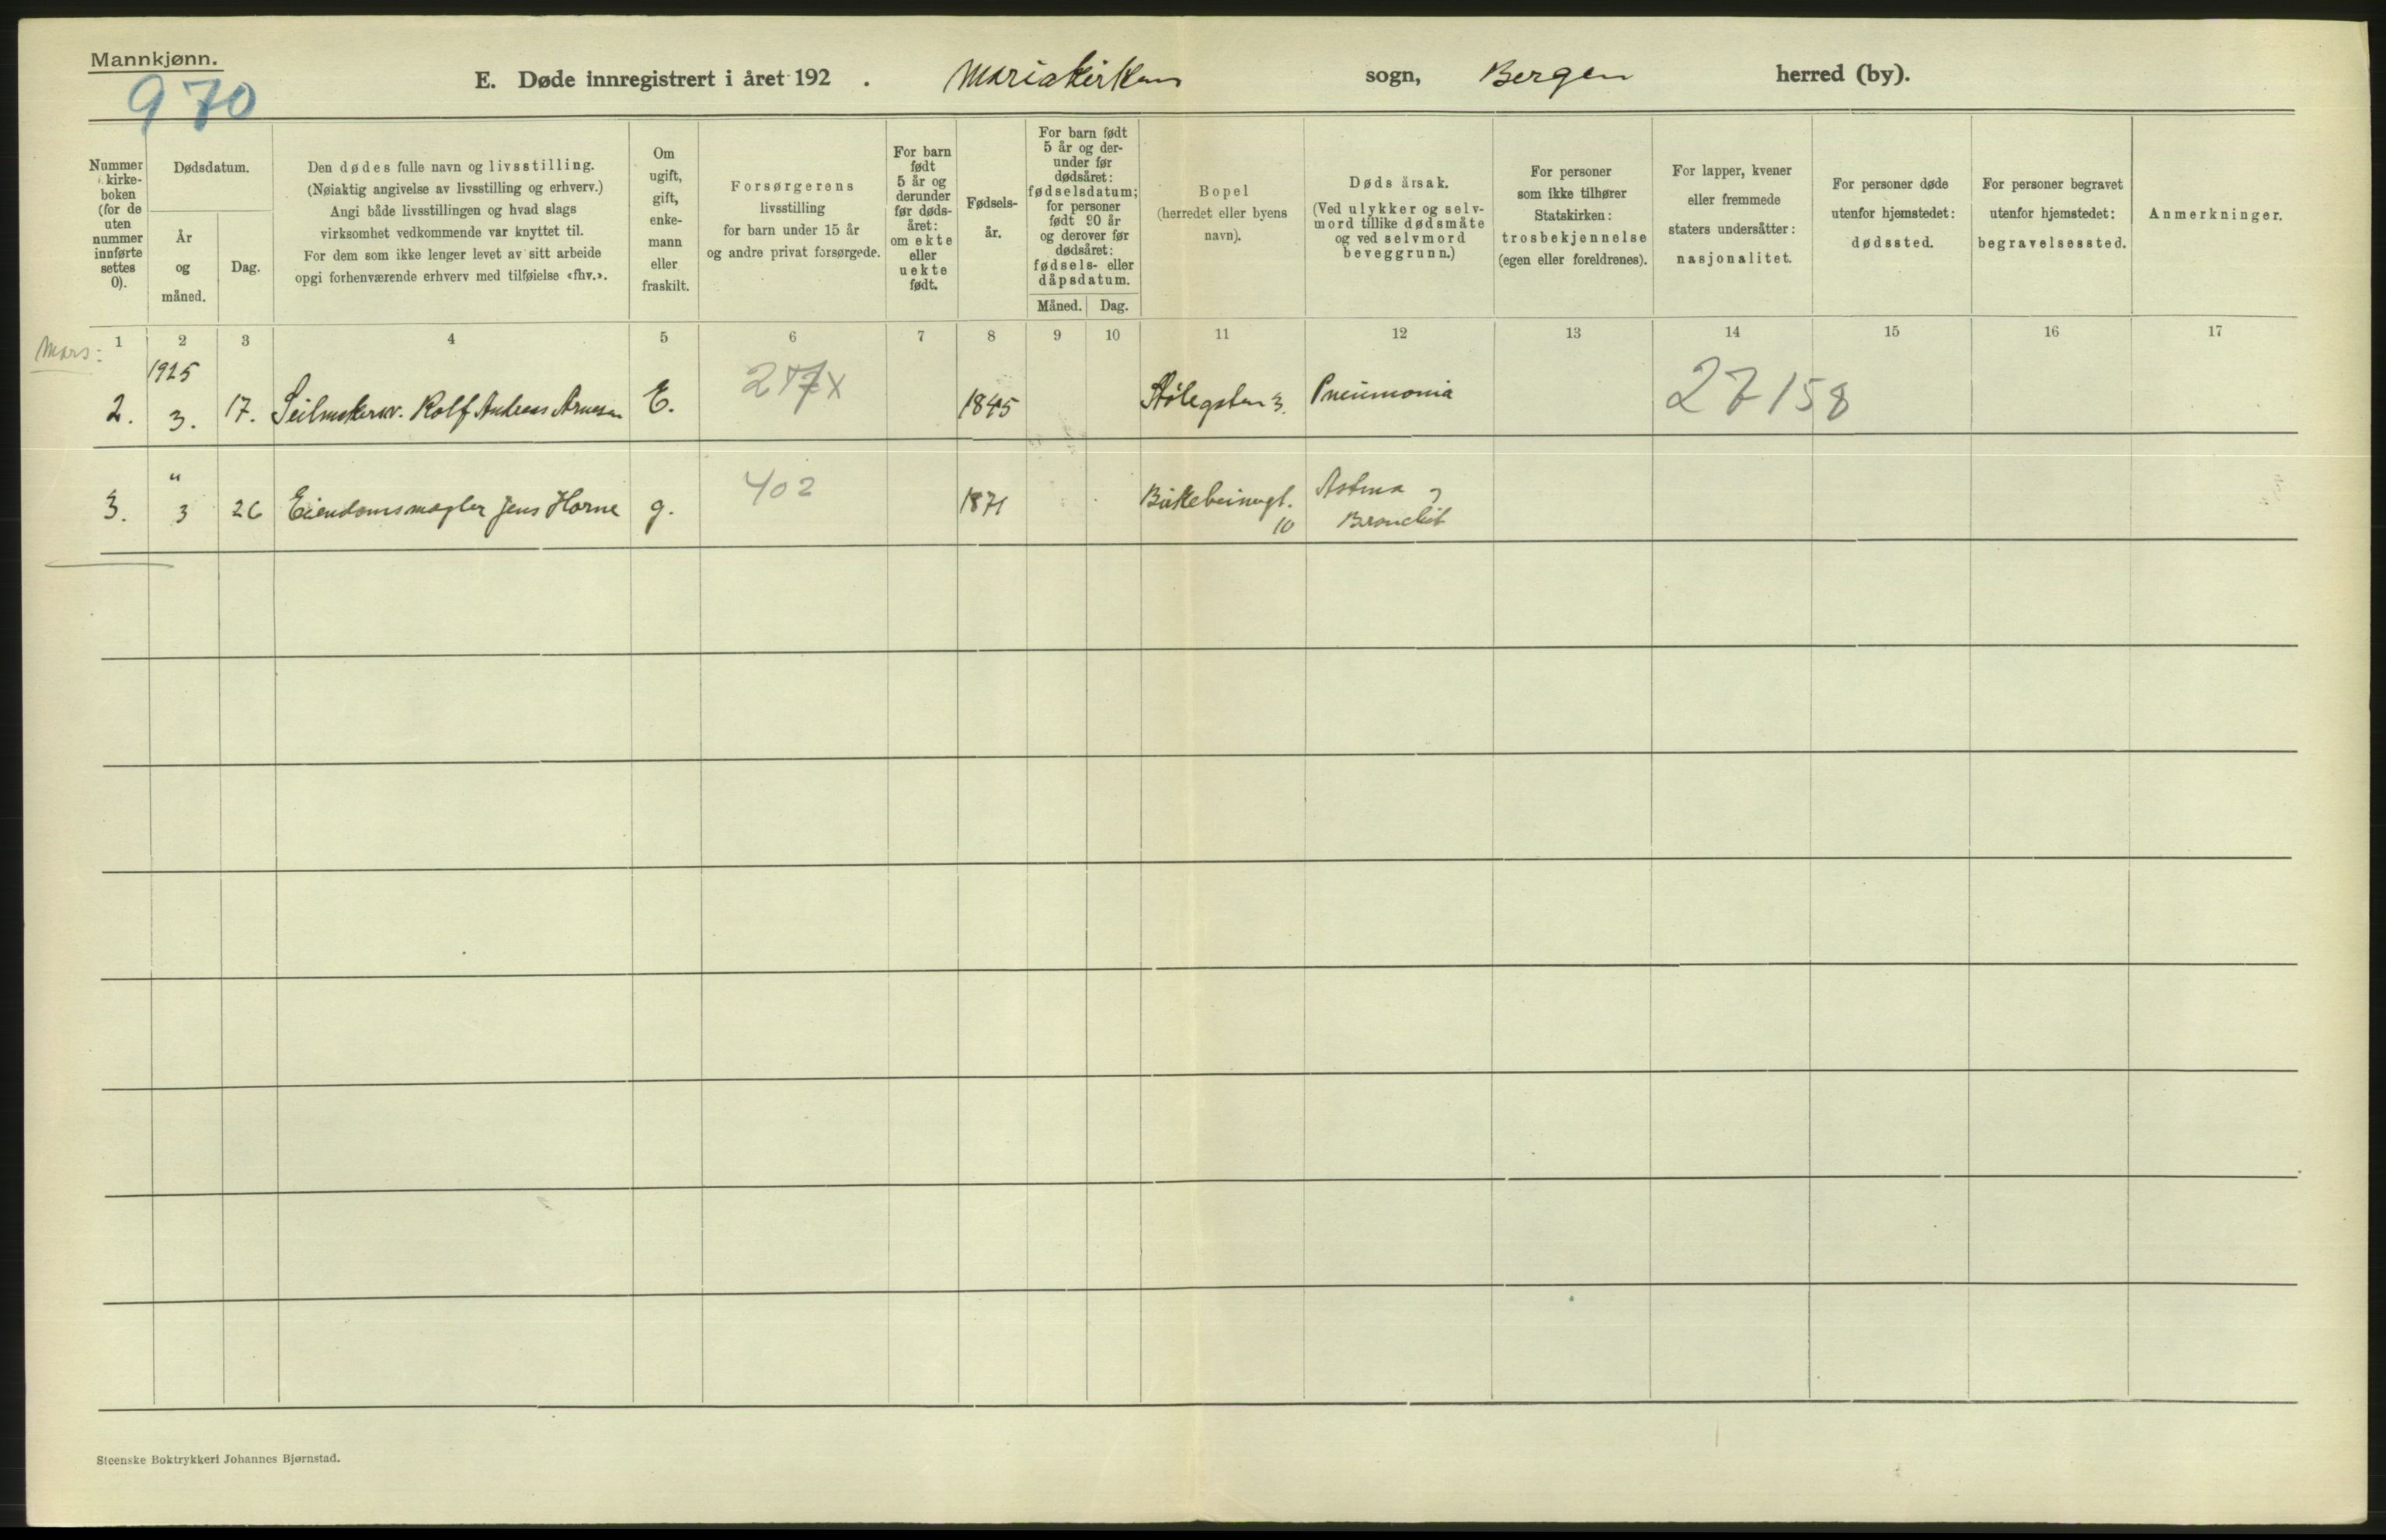 Mannkjønn.
970
E. Døde innregistrert i året 192 . Mariakirken sogn, Bergen herred (by).
Nummer i kirke-
boken
(for de
uten
nummer
innførte
settes
0).
Dødsdatum.
År
og
måned.
Dag.
Den dødes fulle navn og livsstilling.
(Nøiaktig angivelse av livsstilling og erhverv.)
Angi både livsstillingen og hvad slags
virksomhet vedkommende var knyttet til.
For dem som ikke lenger levet av sitt arbeide
opgi forhenværende erhverv med tilføielse «fhv.».
Om
ugift,
gift,
enke-
mann
eller
fraskilt.
Forsørgerens
livsstilling
for barn under 15 år
og andre privat forsørgede.
For barn
født
5 år og
derunder
før døds-
året:
om ekte
eller
uekte
født.
Fødsels-
år.
For barn født
5 år og der-
under før
dødsåret:
fødselsdatum;
for personer
født 90 år
og derover før
dødsåret:
fødsels- eller
dåpsdatum.
Måned. Dag.
Bopel
(herredet eller byens
navn).
Dødsårsak.
(Ved ulykker og selv-
mord tillike dødsmåte
og ved selvmord
beveggrunn.)
For personer
som ikke tilhører
Statskirken:
trosbekjennelse
(egen eller foreldrenes).
For lapper, kvener
eller fremmede
staters undersåtter:
nasjonalitet.
For personer døde
utenfor hjemstedet:
dødssted.
For personer begravet
utenfor hjemstedet:
begravelsessted.
Anmerkninger.
1 2 3 4 5 6 7 8 9 10 11 12 13 14 15 16 17
Mars:
1925
2. 3. 17. Rolf Andreas Arnesen E. 1845 3. Pneumonia 27158
"
3. 3 26 Eiendomsmægler Jens Horne g. 402 1871 Birkebeinergt. Astma
10 Bronchit
Steenske Boktrykkeri Johannes Bjørnstad.